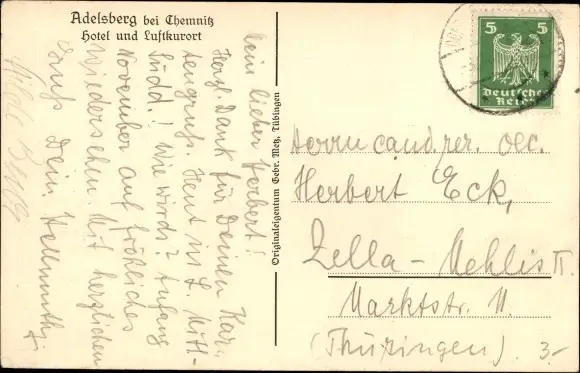 Adelsberg bei Chemnitz
Hotel und Luftkurort
Mein lieber Herbert!
Herzl. Dank für Deinen Kar-
tengruß. Heut in L. Mitt-
Südd.! Wie wirds? Anfang
November auf fröhliches
Wiedersehen. Mit herzlichem
Gruß Dein Hellmuth
Originaleigentum Gebr. Metz, Tübingen
5 5
Deutsches
Reich
Herrn cand. rer. oec.
Herbert Eck,
Zella-Mehlis II.
Marktstr. 11.
(Thüringen). 3-